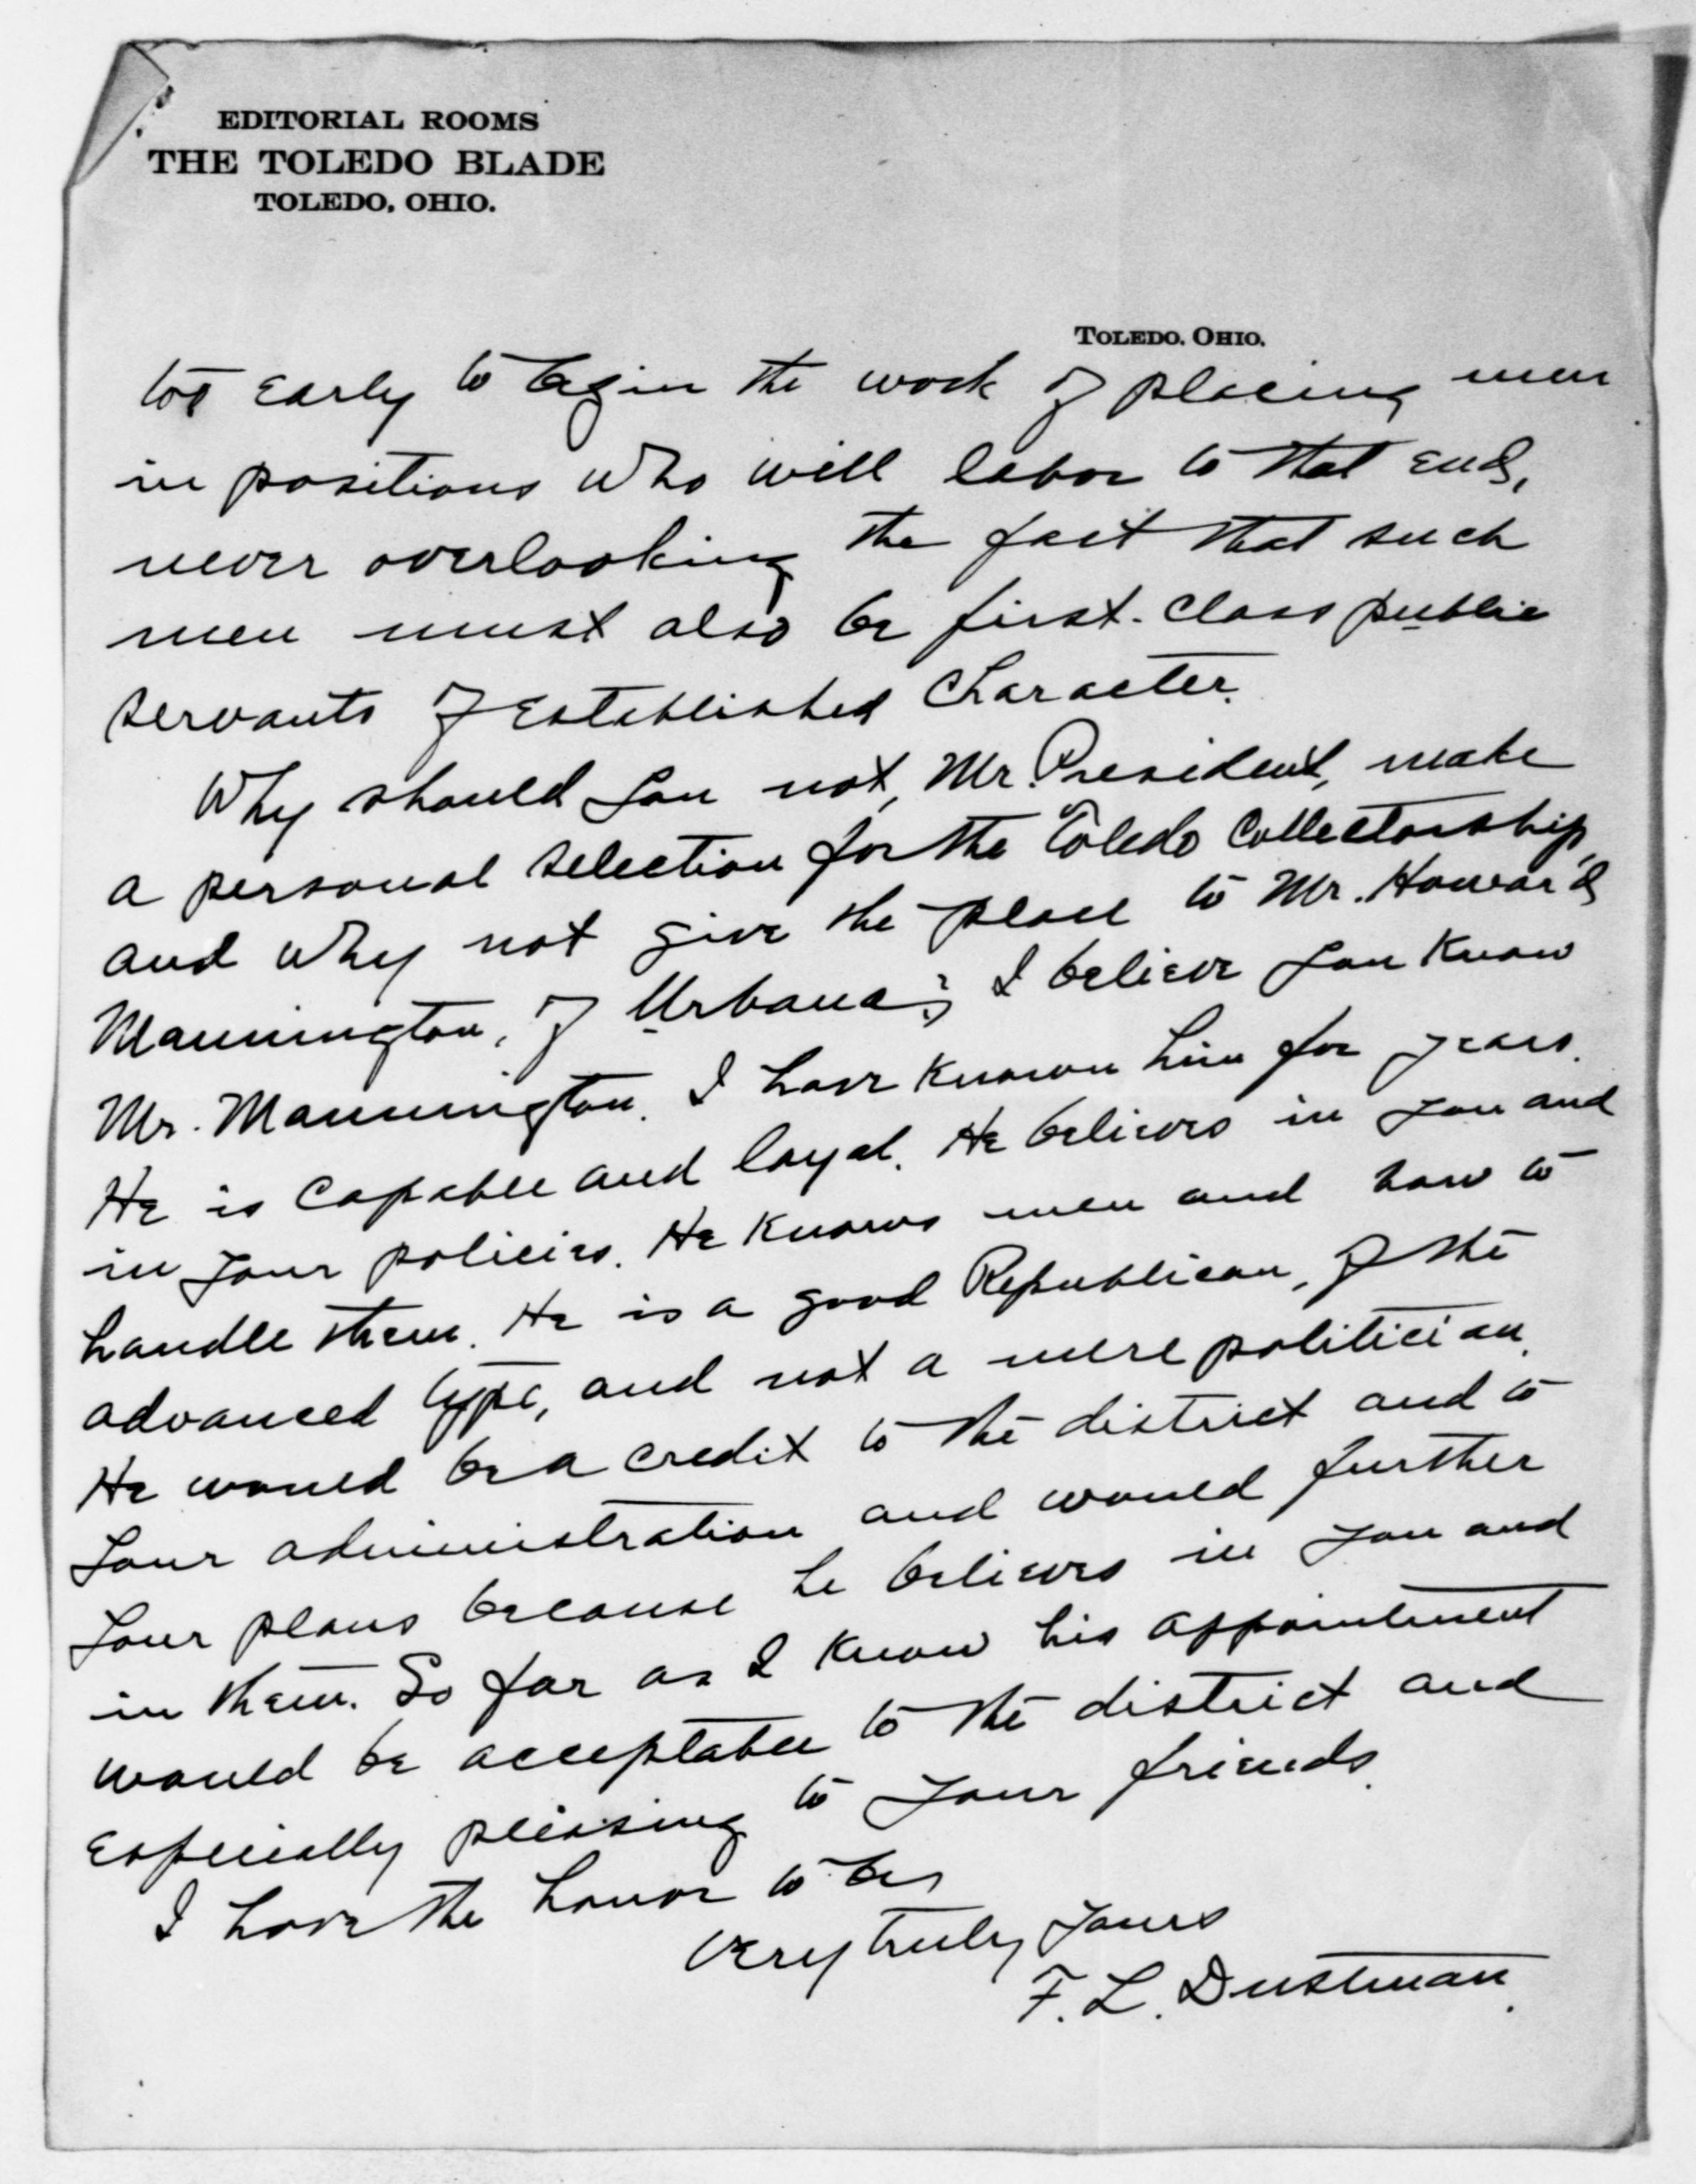 EDITORIAL ROOMS
THE TOLEDO BLADE
TOLEDO, OHIO.
TOLEDO, OHIO.
too early to begin the work of placing men
in positions who will labor to that end,
never overlooking the fact that such
men must also be first-class public
servants of established character.
Why should you not, Mr. President, make
a personal selection for the Toledo Collectorship,
and why not give the place to Mr. Howard
Mannington, of Urbana? I believe you know
Mr. Mannington. I have known him for years.
He is capable and loyal. He believes in you and
in your policies. He knows men and how to
handle them. He is a good Republican, of the
advanced type, and not a mere politician.
He would be a credit to the district and to
your administration and would further
your plans because he believes in you and
in them. So far as I know his appointment
would be acceptable to the district and
especially pleasing to your friends.
I have the honor to be,
Very truly yours
F. L. Dustman.